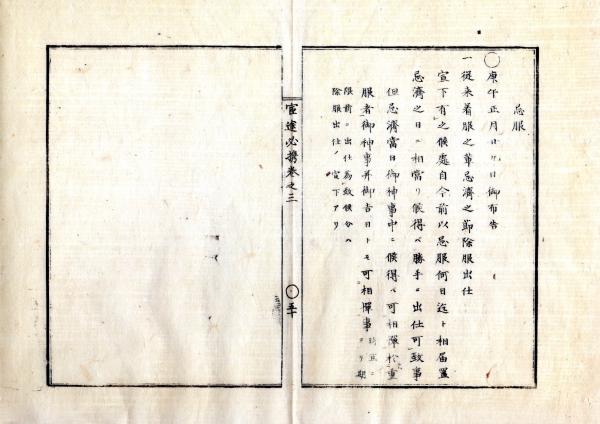 忌服
◯庚午正月廿九日御布告
一従来着服之輩忌済之節除服出仕
宣下有之候處自今前以忌服何日迄ト相届置
忌済之日ニ相當リ候得ハ勝手ニ出仕可致事
但忌済當日御神事中ニ候得ハ可相憚於重
服者御神事并御吉日トモ可相憚事
ヨリ期
限前ニ出仕為致候分ハ
除服出仕ノ宣下アリ
官途必携巻之三
◯五十